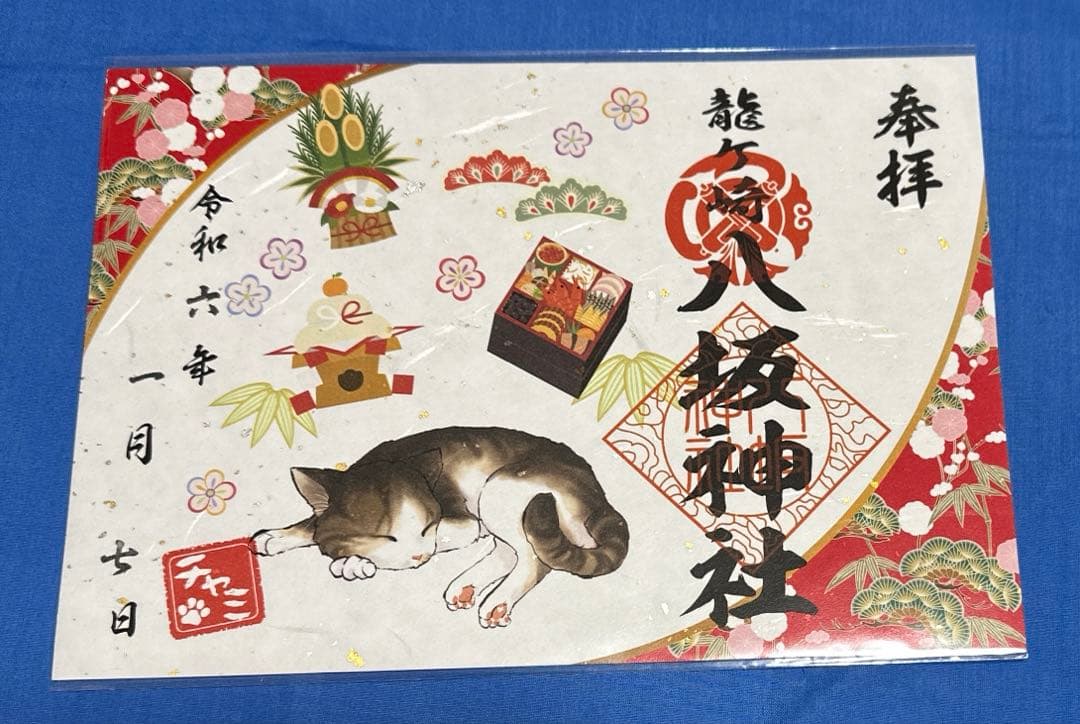 奉拝
龍ケ崎八坂神社
令和六年
一月七日
チャミ